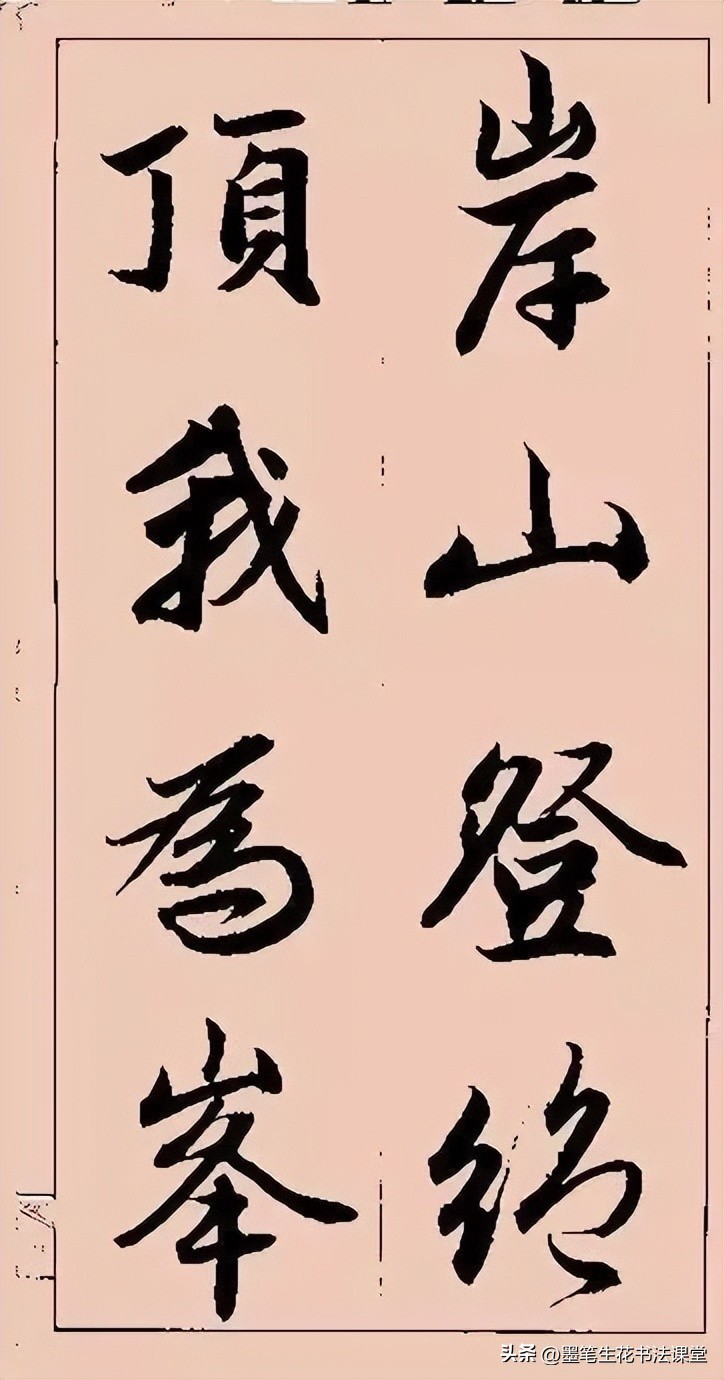 岸山登絶
頂我為峯
头条 @墨笔生花书法课堂